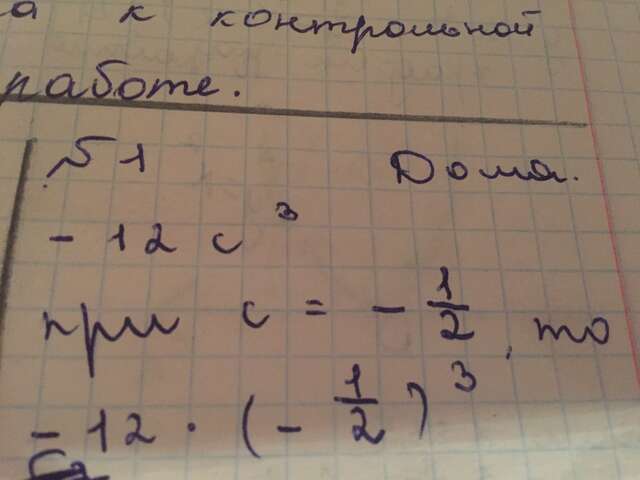 к контрольной
работе.
№1 Дома.
- 12 c³
при c = - 1/2, то
- 12 · (- 1/2)³